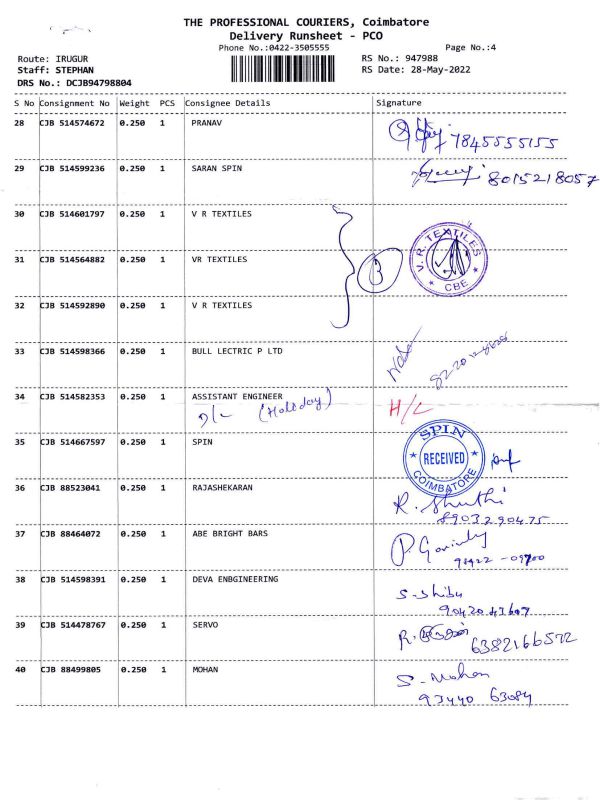 THE PROFESSIONAL COURIERS, Coimbatore
Delivery Runsheet - PCO
Phone No.:0422-3505555 Page No.:4
Route: IRUGUR RS No.: 947988
Staff: STEPHAN RS Date: 28-May-2022
DRS No.: DCJB94798804
S No Consignment No Weight PCS Consignee Details Signature
28 CJB 514574672 0.250 1 PRANAV
7845555155
29 CJB 514599236 0.250 1 SARAN SPIN
8015218057
30 CJB 514601797 0.250 1 V R TEXTILES
31 CJB 514564882 0.250 1 VR TEXTILES
3
V. R. TEXTILES
CBE
32 CJB 514592890 0.250 1 V R TEXTILES
33 CJB 514598366 0.250 1 BULL LECTRIC P LTD
34 CJB 514582353 0.250 1 ASSISTANT ENGINEER
D/L (Holiday) H/L
35 CJB 514667597 0.250 1 SPIN
SPIN
RECEIVED
COIMBATORE
36 CJB 88523041 0.250 1 RAJASHEKARAN
R. Shuthi
8903290475
37 CJB 88464072 0.250 1 ABE BRIGHT BARS
38 CJB 514598391 0.250 1 DEVA ENBGINEERING
S-Shibu
39 CJB 514478767 0.250 1 SERVO
R.
6382166572
40 CJB 88499805 0.250 1 MOHAN
S-Mohan
93440 63084